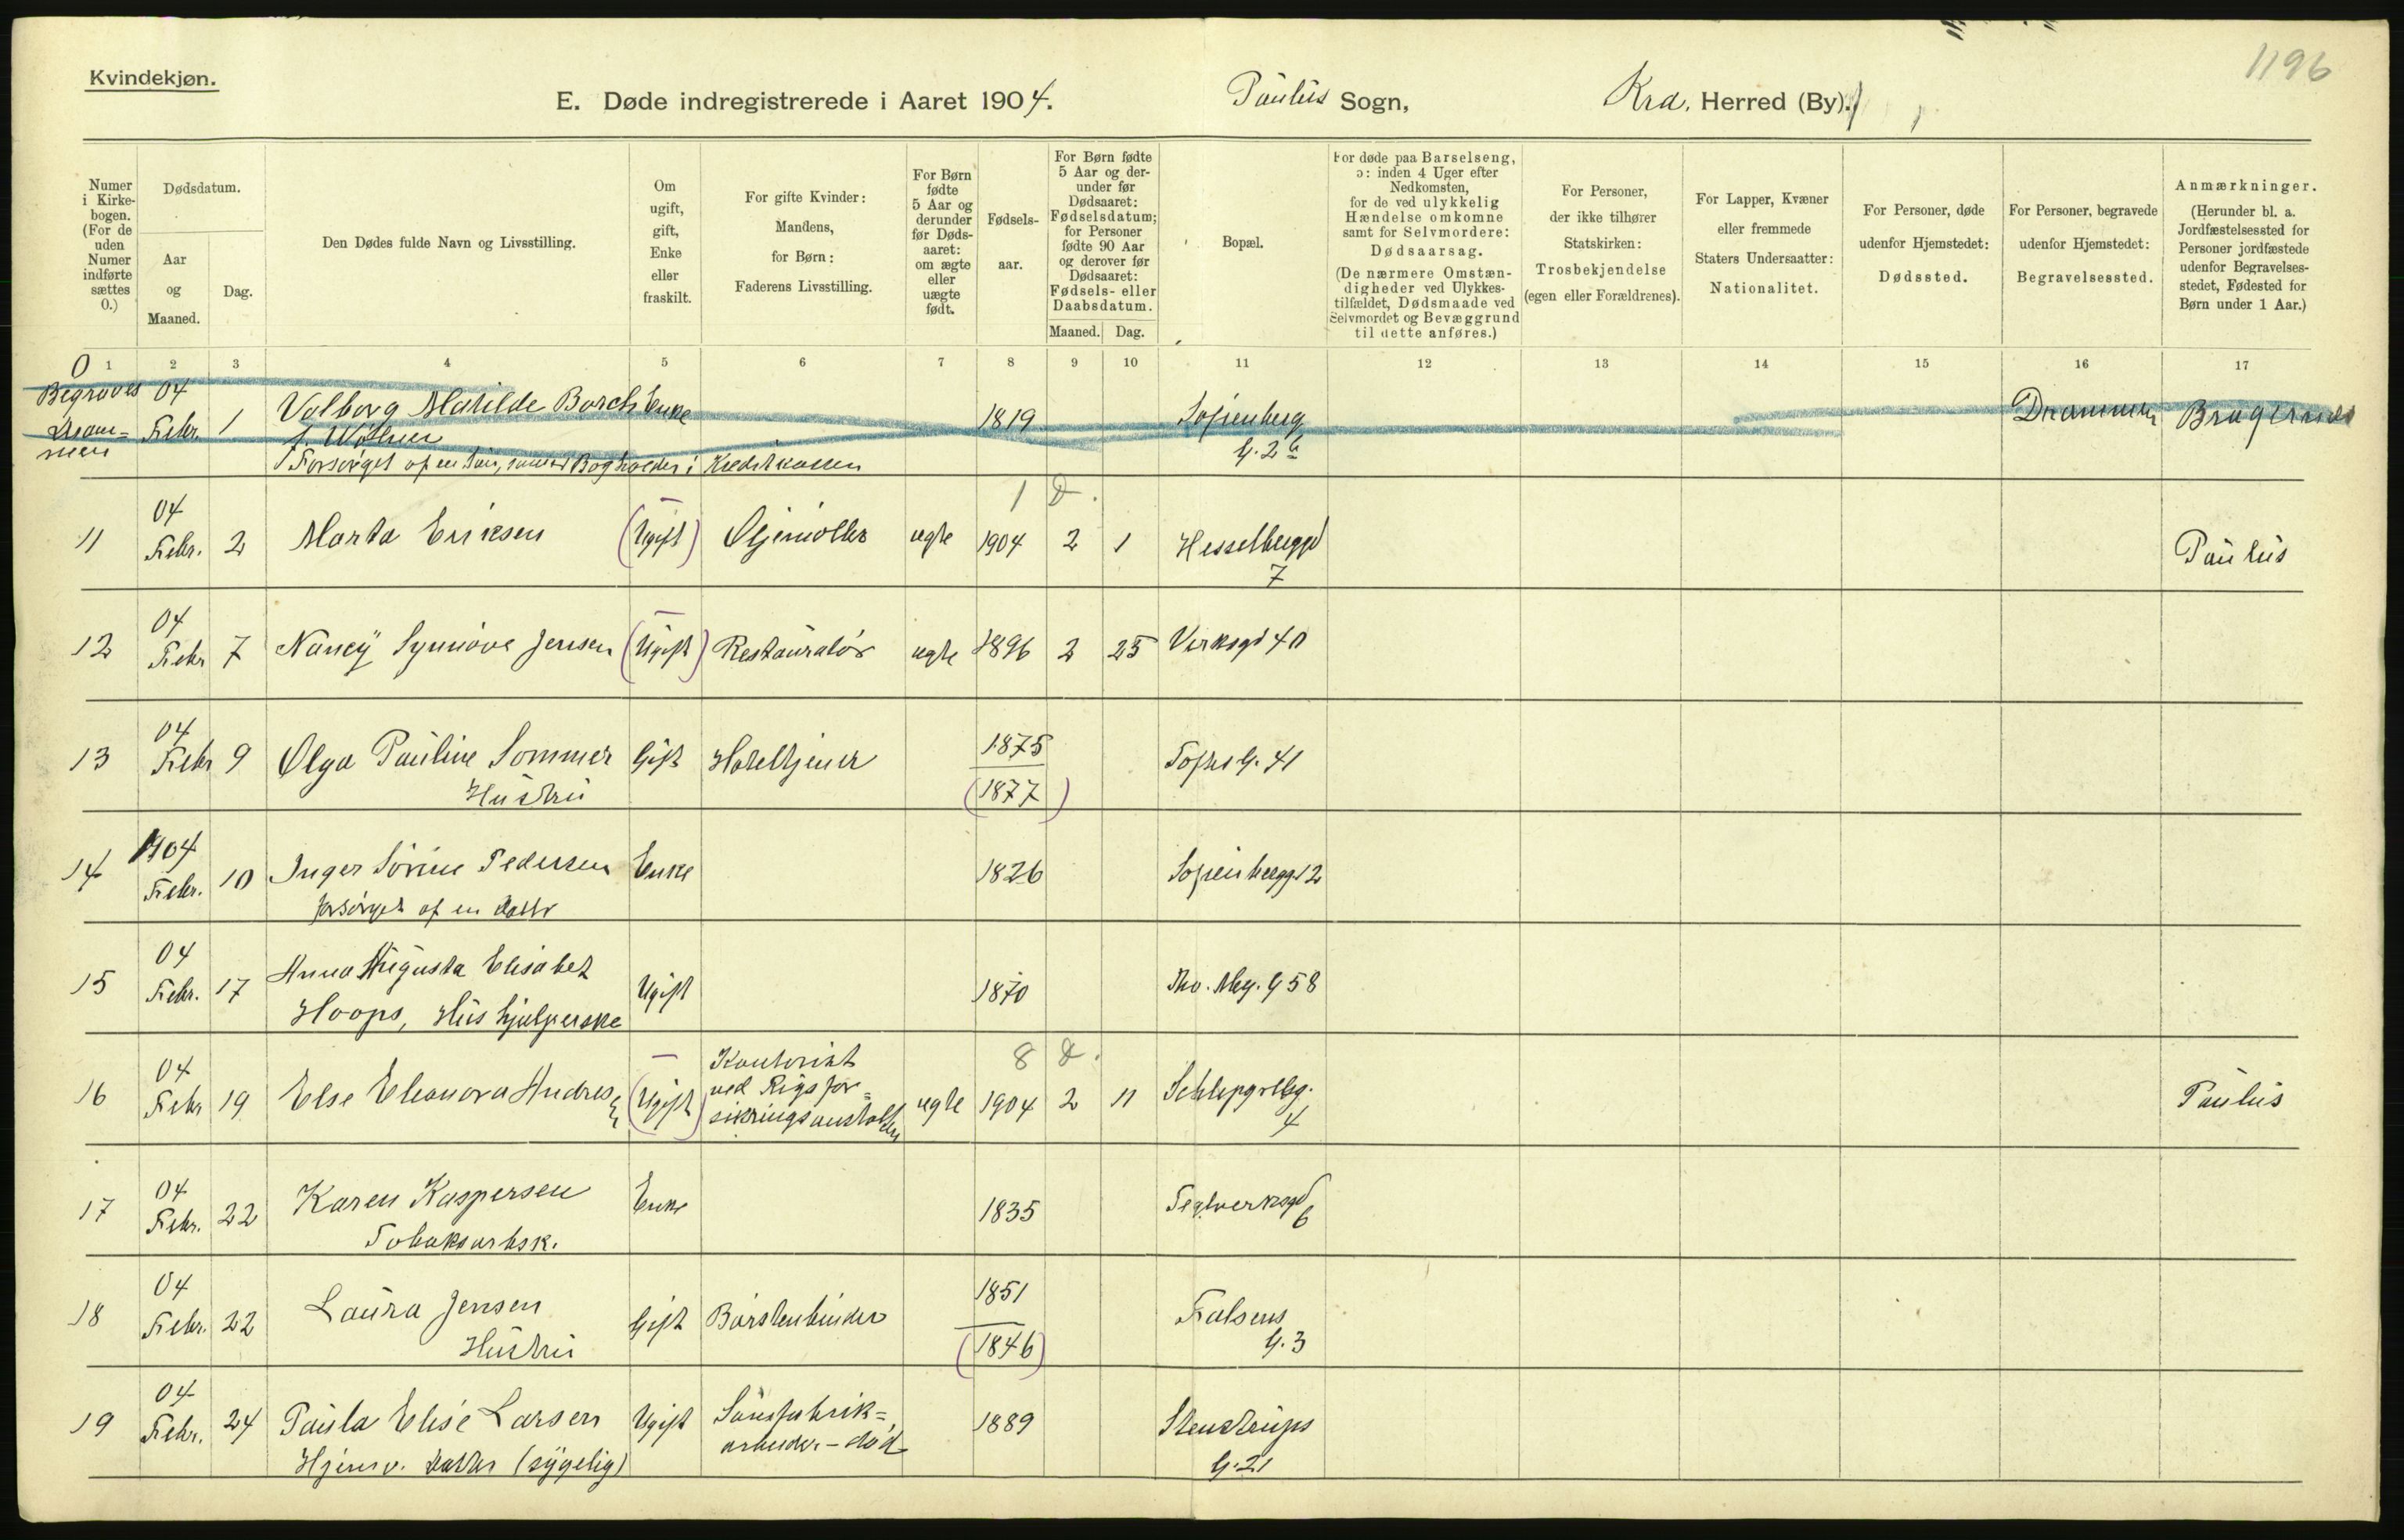 1196
Kvindekjøn.
E. Døde indregistrerede i Aaret 1904. Paulus Sogn, Kra. Herred (By).
Numer i Kirkebogen. (For de uden Numer indførte sættes 0.)
Dødsdatum.
Aar og Maaned.
Dag.
Den Dødes fulde Navn og Livsstilling.
Om ugift, gift, Enke eller fraskilt.
For gifte Kvinder: Mandens, for Børn: Faderens Livsstilling.
For Børn fødte 5 Aar og derunder før Dødsaaret: om ægte eller uægte født.
Fødselsaar.
For Børn fødte 5 Aar og derunder før Dødsaaret: Fødselsdatum; for Personer fødte 90 Aar og derover før Dødsaaret: Fødsels- eller Daabsdatum.
Maaned. Dag.
Bopæl.
For døde paa Barselseng, ɔ: inden 4 Uger efter Nedkomsten, for de ved ulykkelig Hændelse omkomne samt for Selvmordere: Dødsaarsag. (De nærmere Omstændigheder ved Ulykkestilfældet, Dødsmaade ved Selvmordet og Bevæggrund til dette anføres.)
For Personer, der ikke tilhører Statskirken: Trosbekjendelse (egen eller Forældrenes).
For Lapper, Kvæner eller fremmede Staters Undersaatter: Nationalitet.
For Personer, døde udenfor Hjemstedet: Dødssted.
For Personer, begravede udenfor Hjemstedet: Begravelsessted.
Anmærkninger. (Herunder bl. a. Jordfæstelsessted for Personer jordfæstede udenfor Begravelsesstedet, Fødested for Børn under 1 Aar.)
1 2 3 4 5 6 7 8 9 10 11 12 13 14 15 16 17
0 Begraves Drammen 04 Febr. 1 Valborg Matilde Borch Enke 1819 Sofienberg G. 2 b Drammen Bragernes
f. Wøllner
Forsørget af en Søn, som er Bogholder i Kreditkassen
1 D.
11 04 Febr. 2 Marta Eriksen (Ugift) Øljemøller ægte 1904 2 1 Hesselberggd 7 Paulus
12 04 Febr 7 Nancy Synnøve Jensen (Ugift) Restauratør ægte 1896 2 25 Verksgd 40
13 04 Febr 9 Olga Pauline Sommer Gift Hoteltjener 1875 Toftes G. 41
Hustru (1877)
14 1904 Febr. 10 Inger Sørine Pedersen Enke 1826 Sofienbergg. 12
forsørget af en Datter
15 04 Febr. 17 Anna Augusta Elisabet Ugift 1870 Tho. Mey. G 58
Hoops, Hushjælperske
8 D.
16 04 Febr 19 Else Eleonora Andresen (Ugift) Kontorist ved Rigsforsikringsanstalten ægte 1904 2 11 Schleppgrellsg. 4 Paulus
17 04 Febr. 22 Karen Kaspersen Enke 1835 Teglverksgd 6
Tobaksarbsk.
18 04 Febr. 22 Laura Jensen Gift Børstenbinder 1851 Falsens G. 3
Hustru (1846)
19 04 Febr. 24 Paula Elise Larsen Ugift arbeider – død 1889 Stenstrups G. 21
Hjemv. Datter (sygelig)